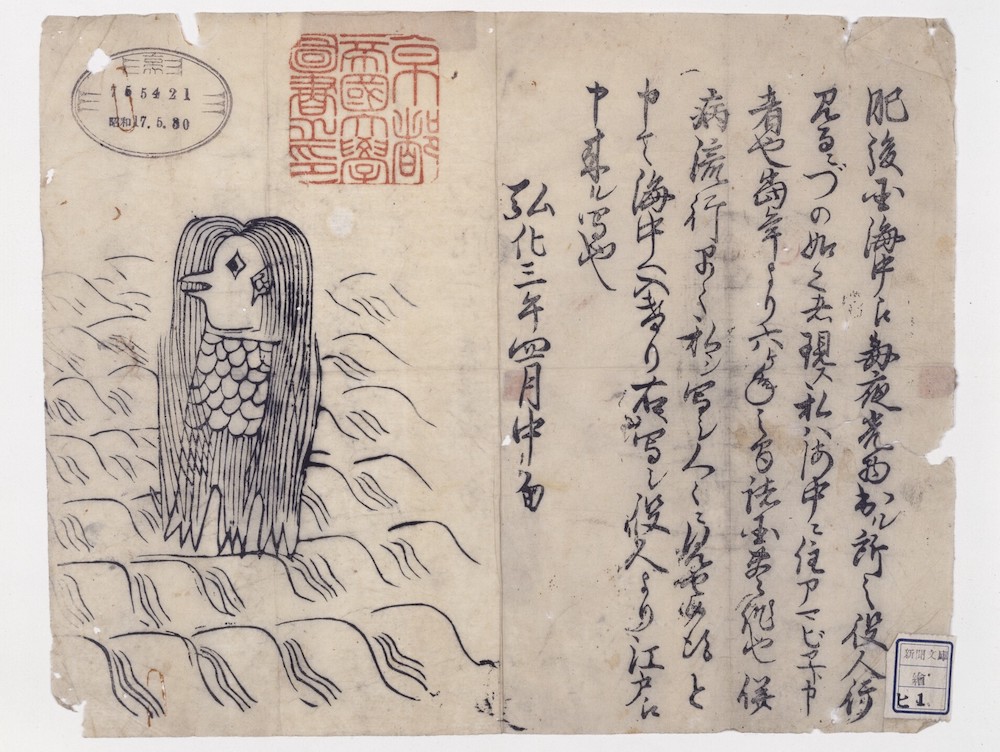 肥後国海中江毎夜光物出ル所之役人行
見るニづの如く者現ス私ハ海中ニ住アマビヱト申
者也當年より六ヶ年之間諸国豊作也併
病流行早々私シ写シ人々ニ見せ候得と
申て海中へ入けり右写シ役人より江戸江
申来ル写也
弘化三年四月中旬
京都
帝國大學
圖書之印
55421
昭和17.5.30
新聞文庫
繪
ヒ 1.